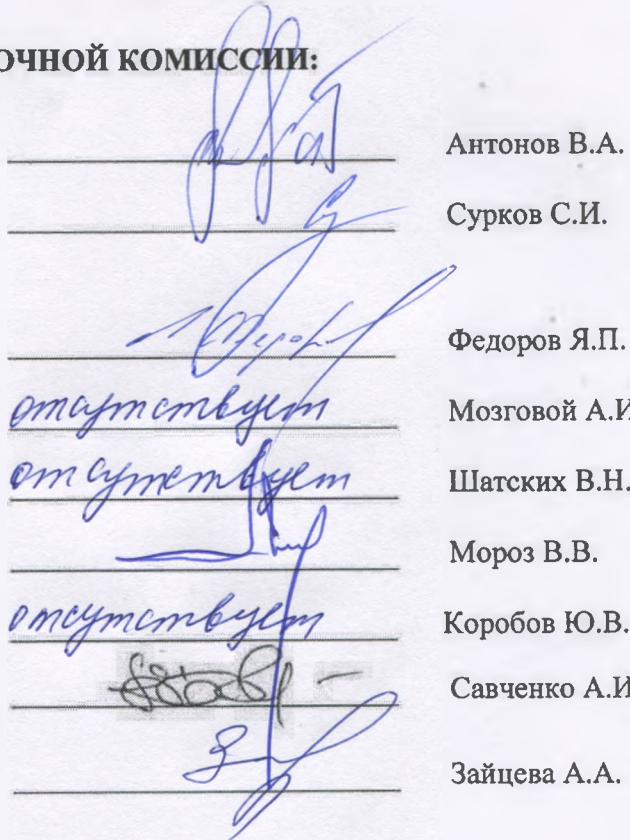 ОЧНОЙ КОМИССИИ:
Антонов В.А.
Сурков С.И.
Федоров Я.П.
отсутствует Мозговой А.И
отсутствует Шатских В.Н.
Мороз В.В.
отсутствует Коробов Ю.В.
Савченко А.И
Зайцева А.А.